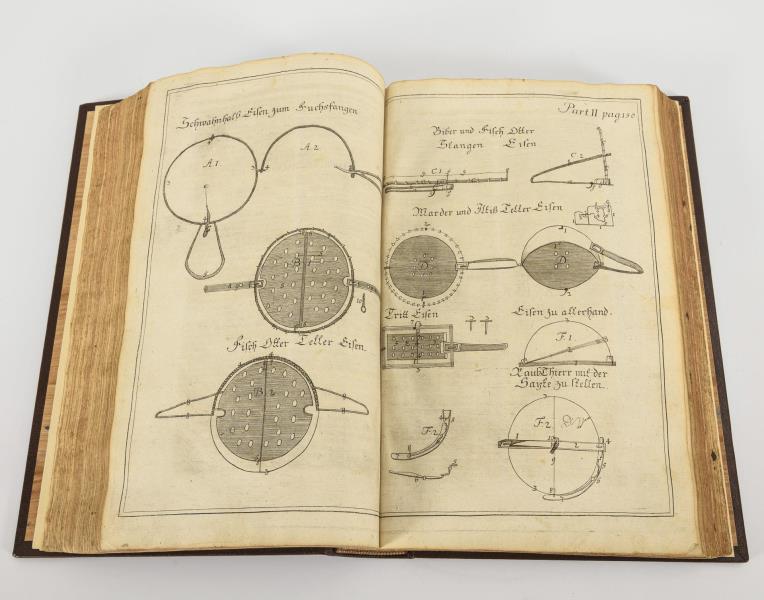 Schwahnhalß Eisen zum Fuchsfangen
A.1
A.2
B.1
Fisch Otter Teller Eisen.
B.2
Part II pag:130
Biber und Fisch Otter
Stangen Eisen
C.1
C.2
Marder und Iltiß Teller Eisen
D
D
Tritt Eisen
Eisen zu allerhand.
F.1
RaubThierr mit der
Sayte zu stellen.
F.2
F.2